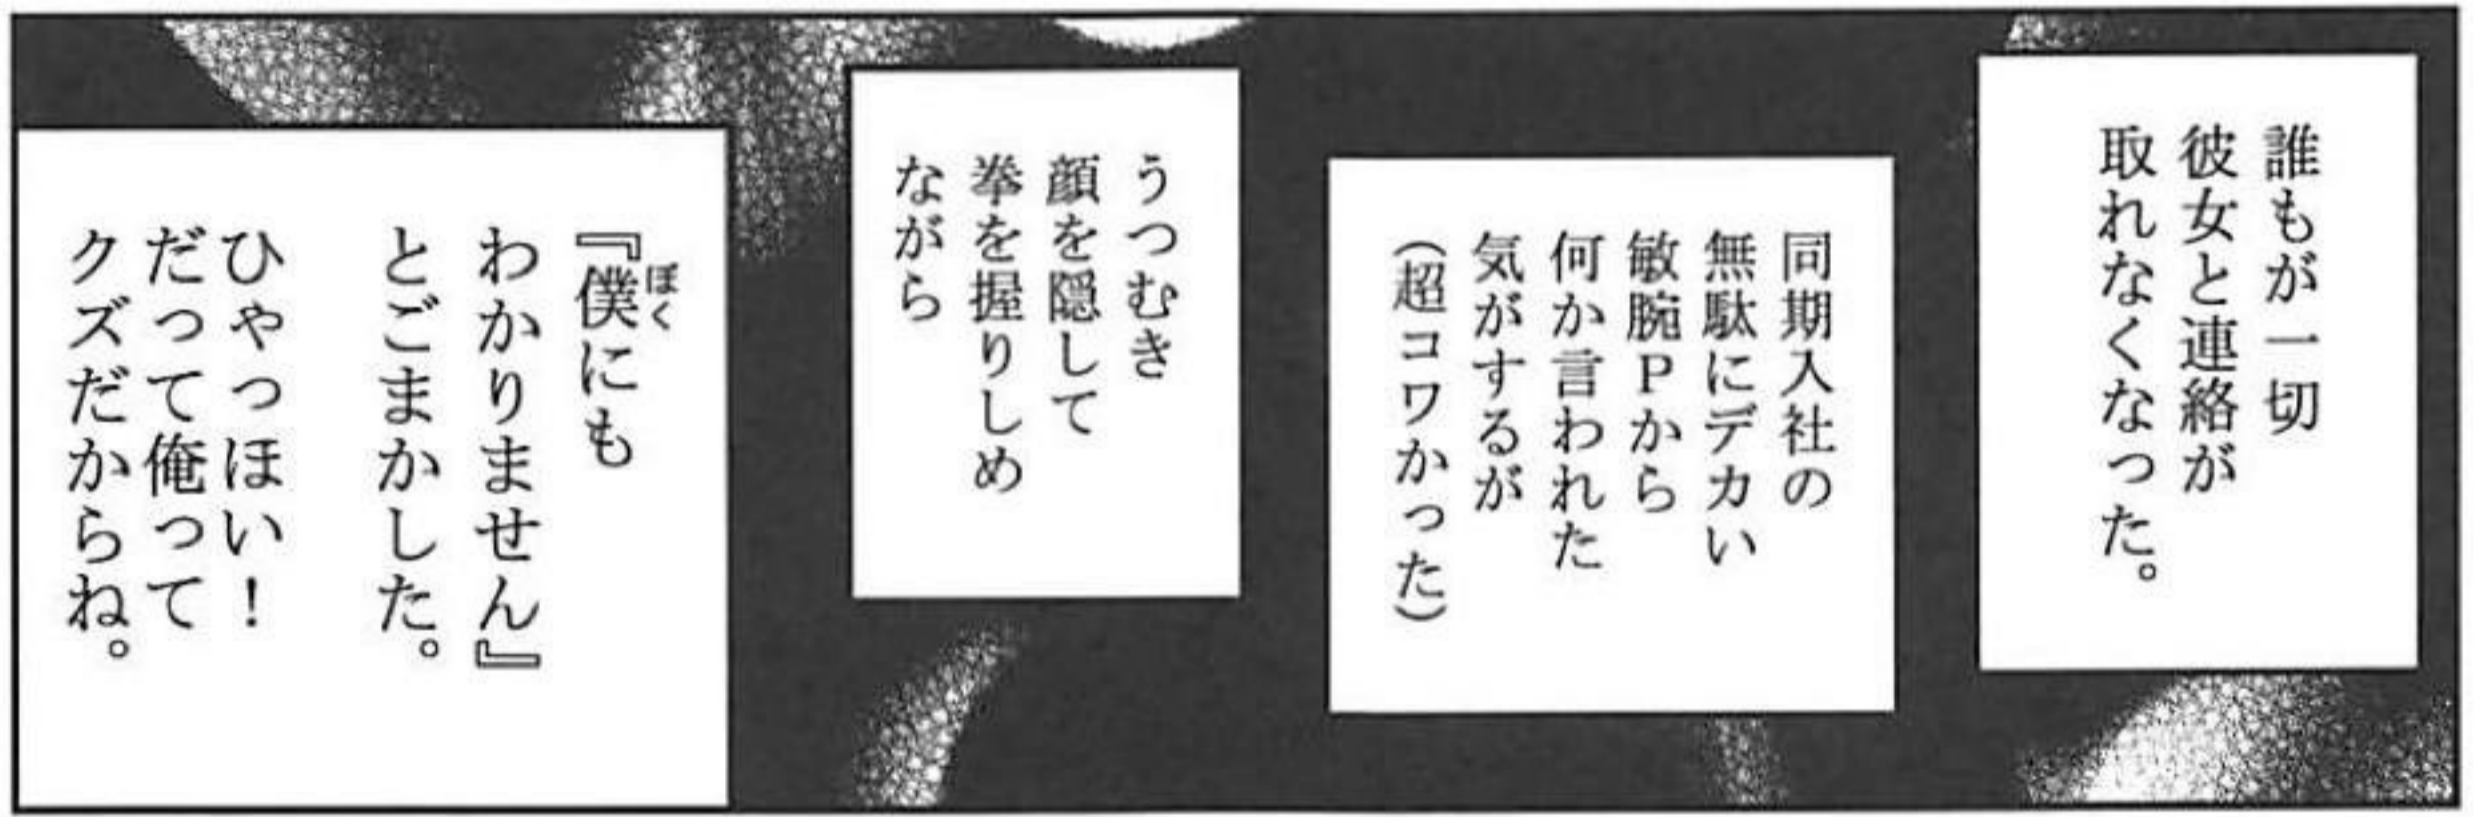 誰もが一切
彼女と連絡が
取れなくなった。
同期入社の
無駄にデカい
敏腕Pから
何か言われた
気がするが
（超コワかった）
うつむき
顔を隠して
拳を握りしめ
ながら
『僕にも
ぼく
わかりません』
とごまかした。
ひゃっほい！
だって俺って
クズだからね。